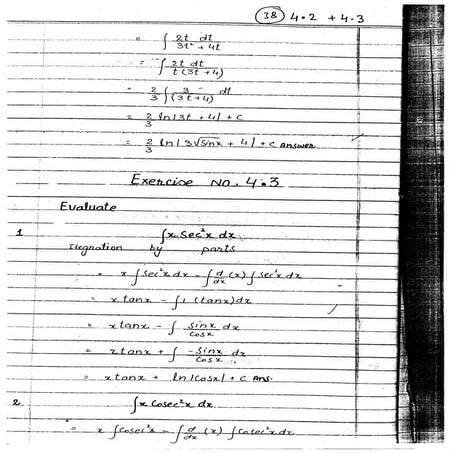 (38) 4.2 + 4.3
= ∫ 2t dt / 3t² + 4t
= ∫ 2t dt / t(3t + 4)
= 2/3 ∫ 3 / (3t + 4) dt
= 2/3 ln|3t + 4| + c
= 2/3 ln|3√sinx + 4| + c Answer
Exercise No. 4.3
Evaluate
1 ∫x Sec²x dx
by parts
= x ∫sec²x dx - ∫ d/dx (x) ∫sec²x dx
= x tanx - ∫1 (tanx)dx
= x tanx - ∫ sinx / cosx dx
= x tanx + ∫ -sinx / cosx dx
= x tanx + ln|cosx| + c Ans.
2. ∫x Cosec²x dx
= x ∫cosec²x - ∫ d/dx (x) ∫cosec²x dx